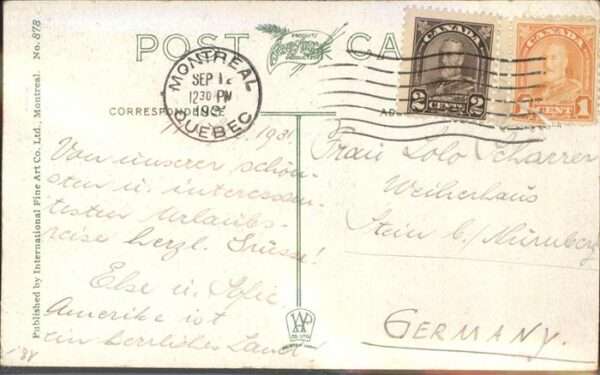 Published by International Fine Art Co., Ltd., Montreal. No. 878
POST CA
MONTREAL
SEP 12
1230 PM
193
QUEBEC
CANADA
2 CENTS 2
CANADA
1 CENT 1
CORRESPONDENCE
AD
1931.
Von unserer schön-
sten u. interessan-
testen Urlaubs-
reise herzl. Grüsse!
Else u. Sofie.
Amerika ist
ein herrliches Land!
Frau Lolo Scharrer
Weiherhaus
Stein b./Nürnberg
GERMANY.